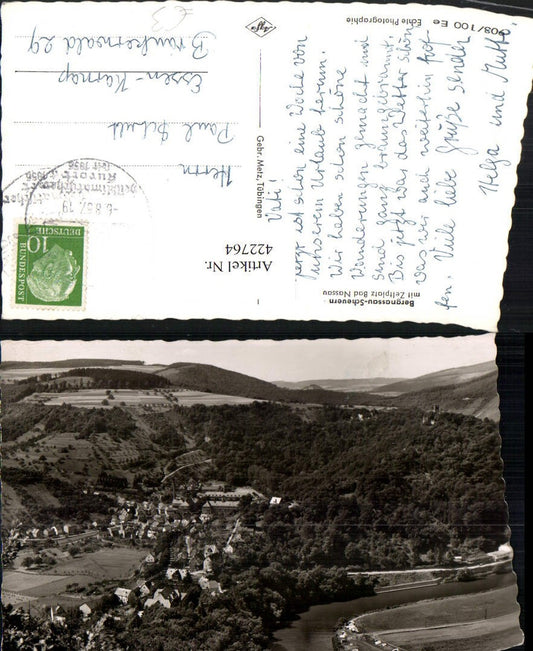 908/100 Ee Echte Photographie
Agfa
Vati!
ist schon eine Woche von
unserem Urlaub herum.
Wir haben schon schöne
Wanderungen gemacht und
sind ganz braungebrannt.
Bis jetzt war das Wetter schön
was wir auch weiterhin hof-
fen. Viele liebe Grüße senden
Helga und Mutti.
Bergnassau-Scheuern
mit Zeltplatz Bad Nassau
Gebr. Metz, Tübingen
Artikel Nr.
422764
Herrn
Paul
Essen-Karnap
Braukerwald 29
Kurort
seit 1936
10
DEUTSCHE
BUNDESPOST